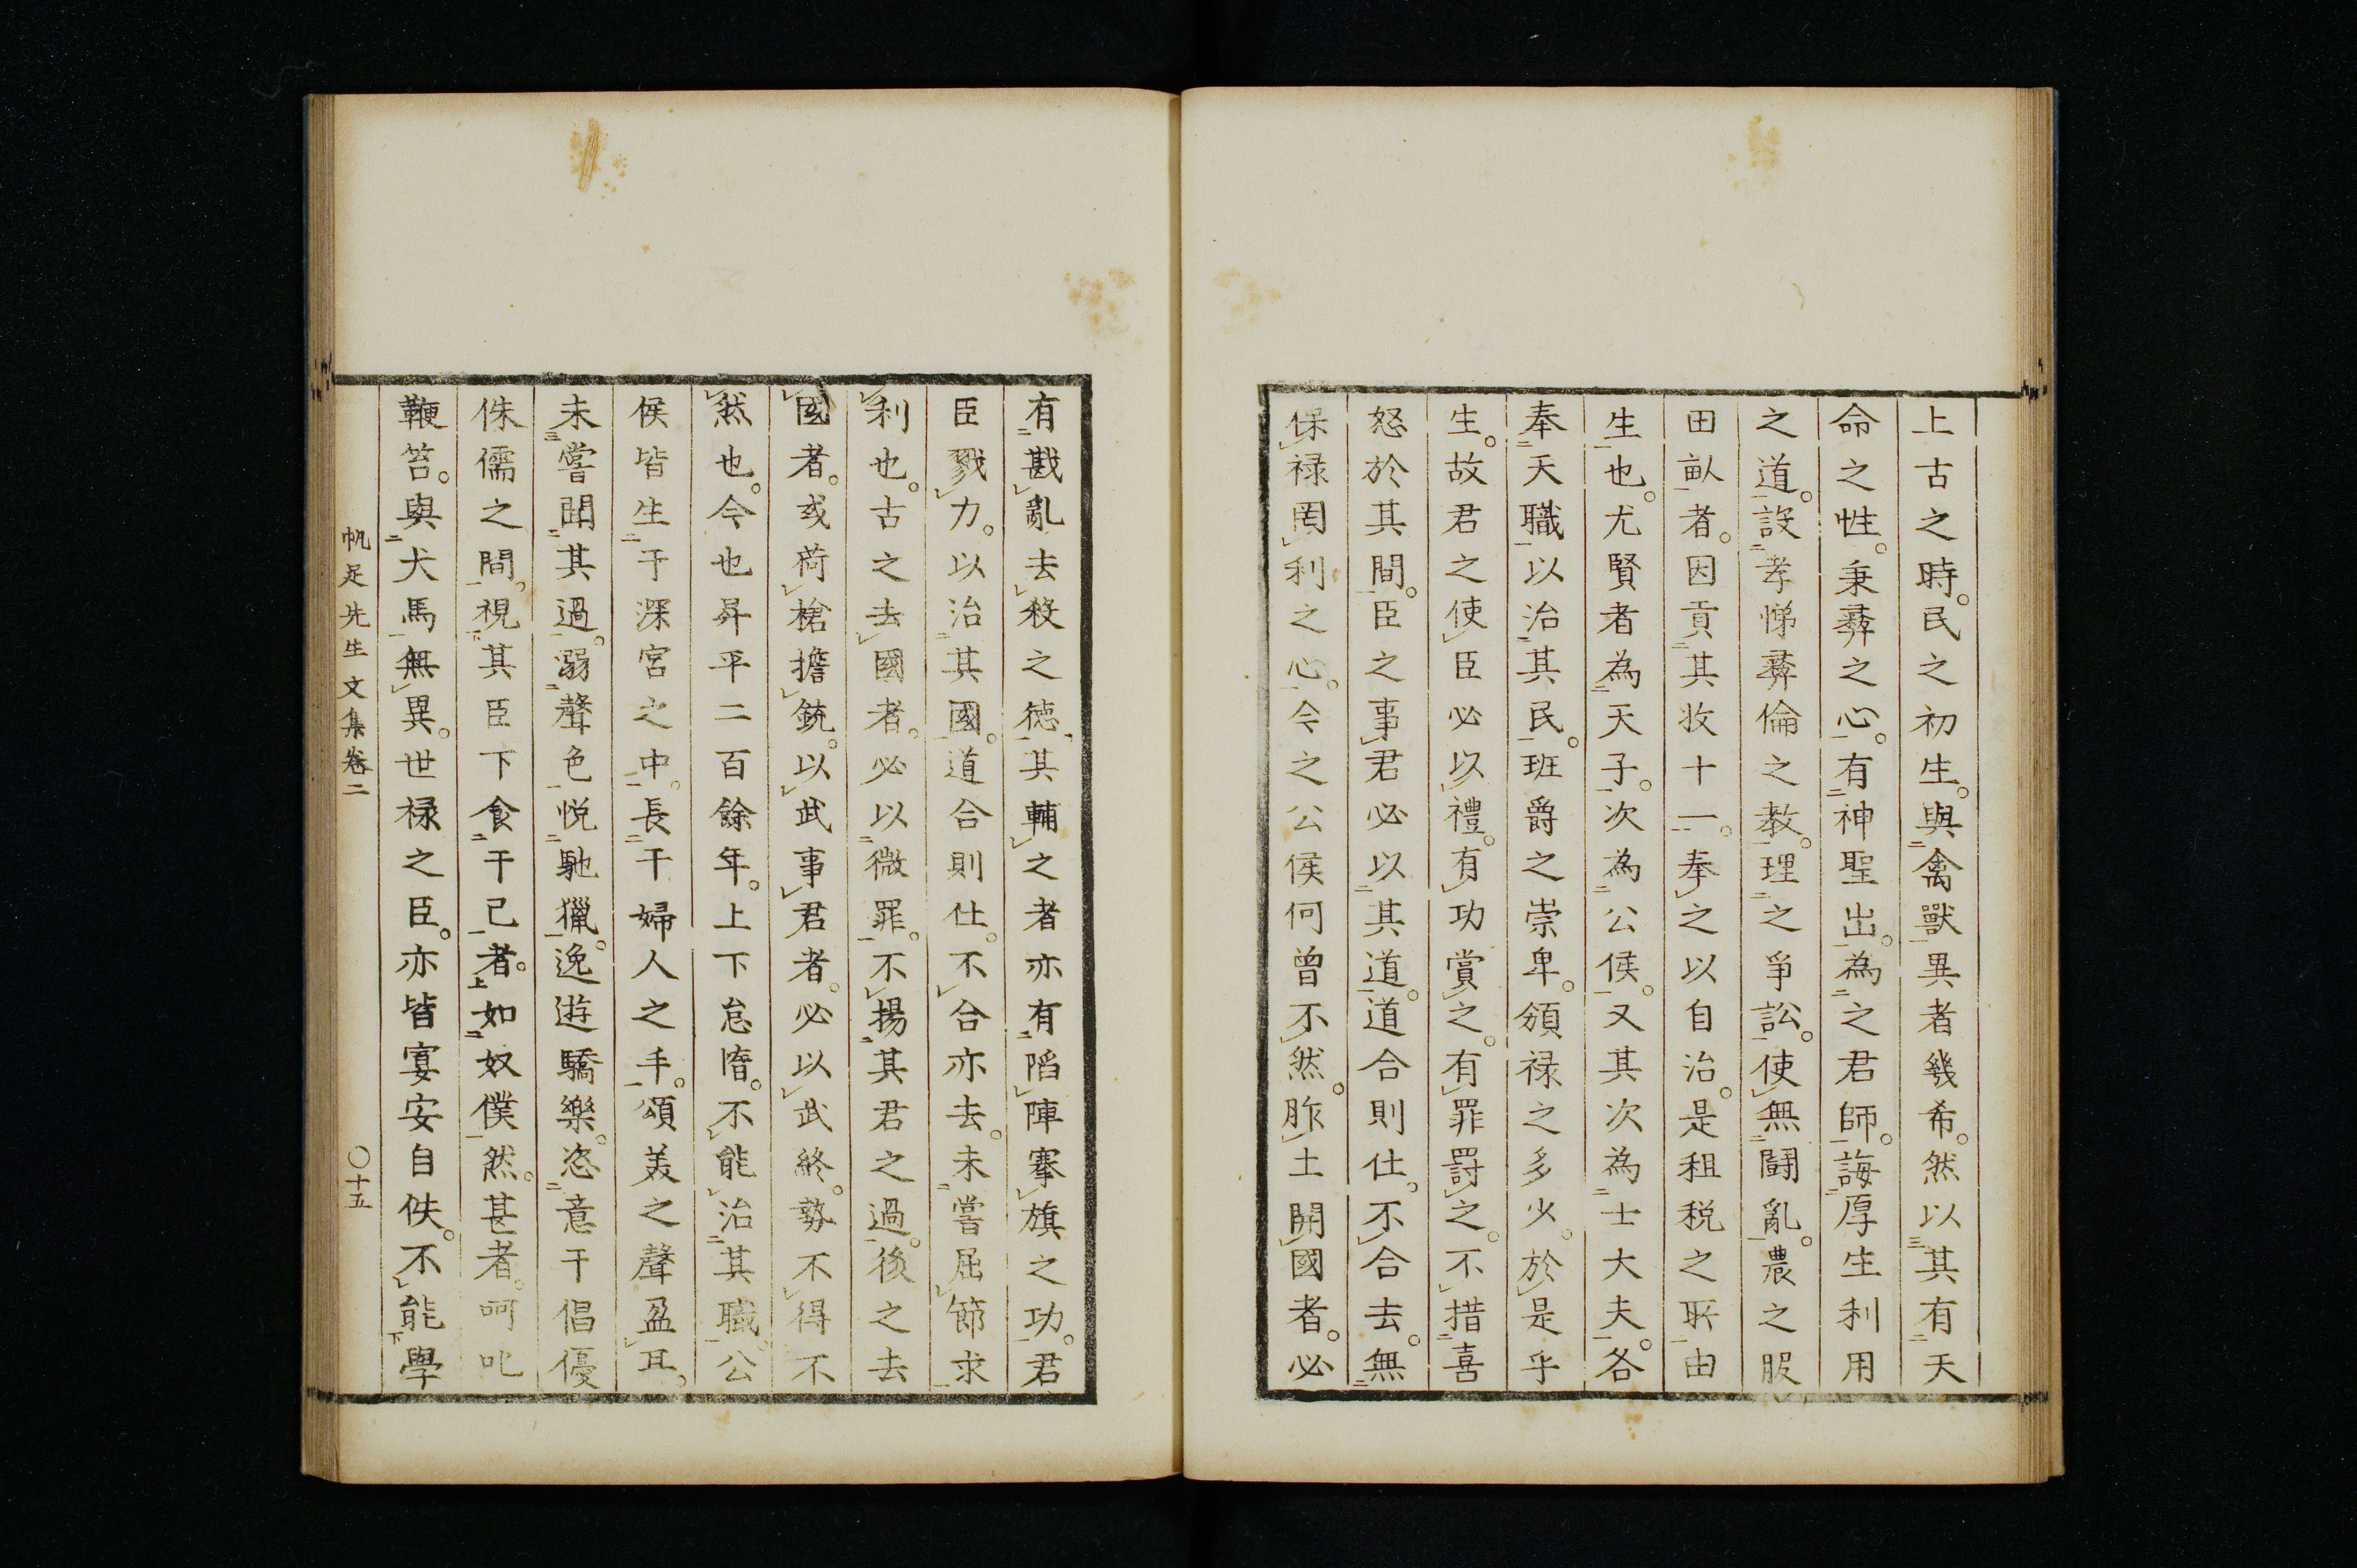 上古之時。民之初生。與禽獸異者幾希。然以其有天
命之性。秉彝之心。有神聖出。為之君師。誨厚生利用
之道。設孝悌彝倫之教。理之爭訟。使無鬪亂。農之服
田畝者。因貢其收十一。奉之以自治。是租税之所由
生也。尤賢者為天子。次為公侯。又其次為士大夫。各
奉天職以治其民。班爵之崇卑。頒禄之多少。於是乎
生。故君之使臣必以禮。有功賞之。有罪罰之。不措喜
怒於其間。臣之事君必以其道。道合則仕。不合去。無
保禄罔利之心。今之公侯何曾不然。胙土開國者。必
有戡亂去殘之徳、其輔之者亦有陷陣搴旗之功。君
臣戮力。以治其國。道合則仕。不合亦去。未嘗屈節求
利也。古之去國者。必以微罪。不揚其君之過。後之去
國者。或荷槍擔銃。以武事君者。必以武終。勢不得不
然也。今也昇平二百餘年。上下怠惰。不能治其職。公
侯皆生于深宮之中。長于婦人之手。頌美之聲盈耳。
未嘗聞其過。溺聲色悦馳獵。逸遊驕樂。恣意于倡優
侏儒之間。視其臣下食于己者。如奴僕然。甚者。呵叱
鞭笞。與犬馬無異。世禄之臣。亦皆宴安自佚。不能學
帆足先生文集巻二
〇十五